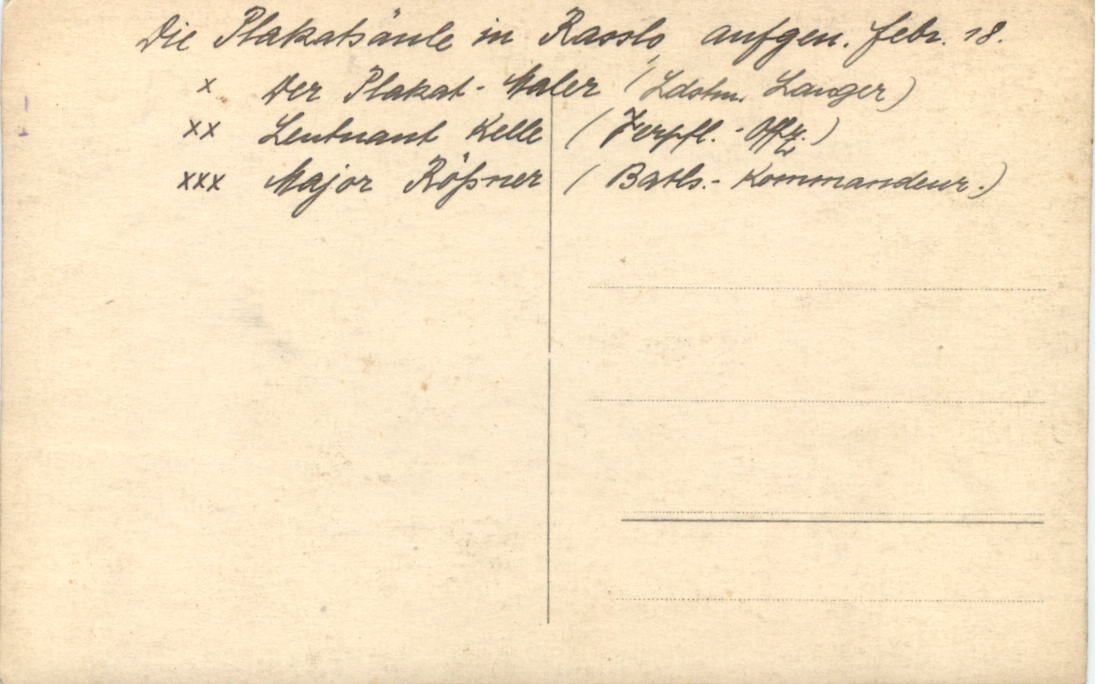 Die Plakatsäule in Rasslo aufgen. Febr. 18.
x Der Plakat-Maler (Ldstm. Langer)
xx Leutnant Kelle (Verpfl.-Offz.)
xxx Major Rößner (Batls.-Kommandeur.)